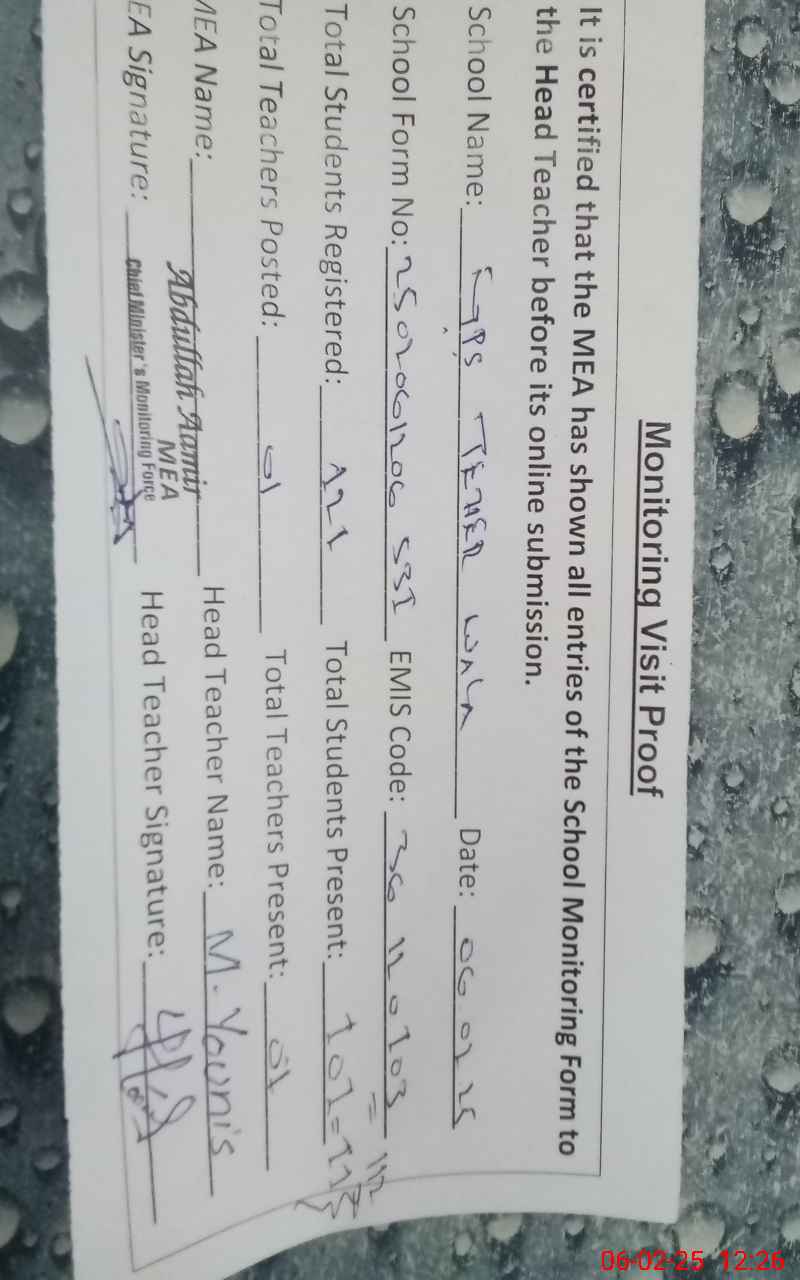 Monitoring Visit Proof
It is certified that the MEA has shown all entries of the School Monitoring Form to
the Head Teacher before its online submission.
School Name: GPS WALA Date: 06 02 25
School Form No: EMIS Code:
Total Students Registered: 121 Total Students Present:
Total Teachers Posted: 01 Total Teachers Present: 01
MEA Name: Abdullah Aamir Head Teacher Name: M. Younis
MEA
EA Signature: Chief Minister's Monitoring Force Head Teacher Signature:
06-02-25 12:26